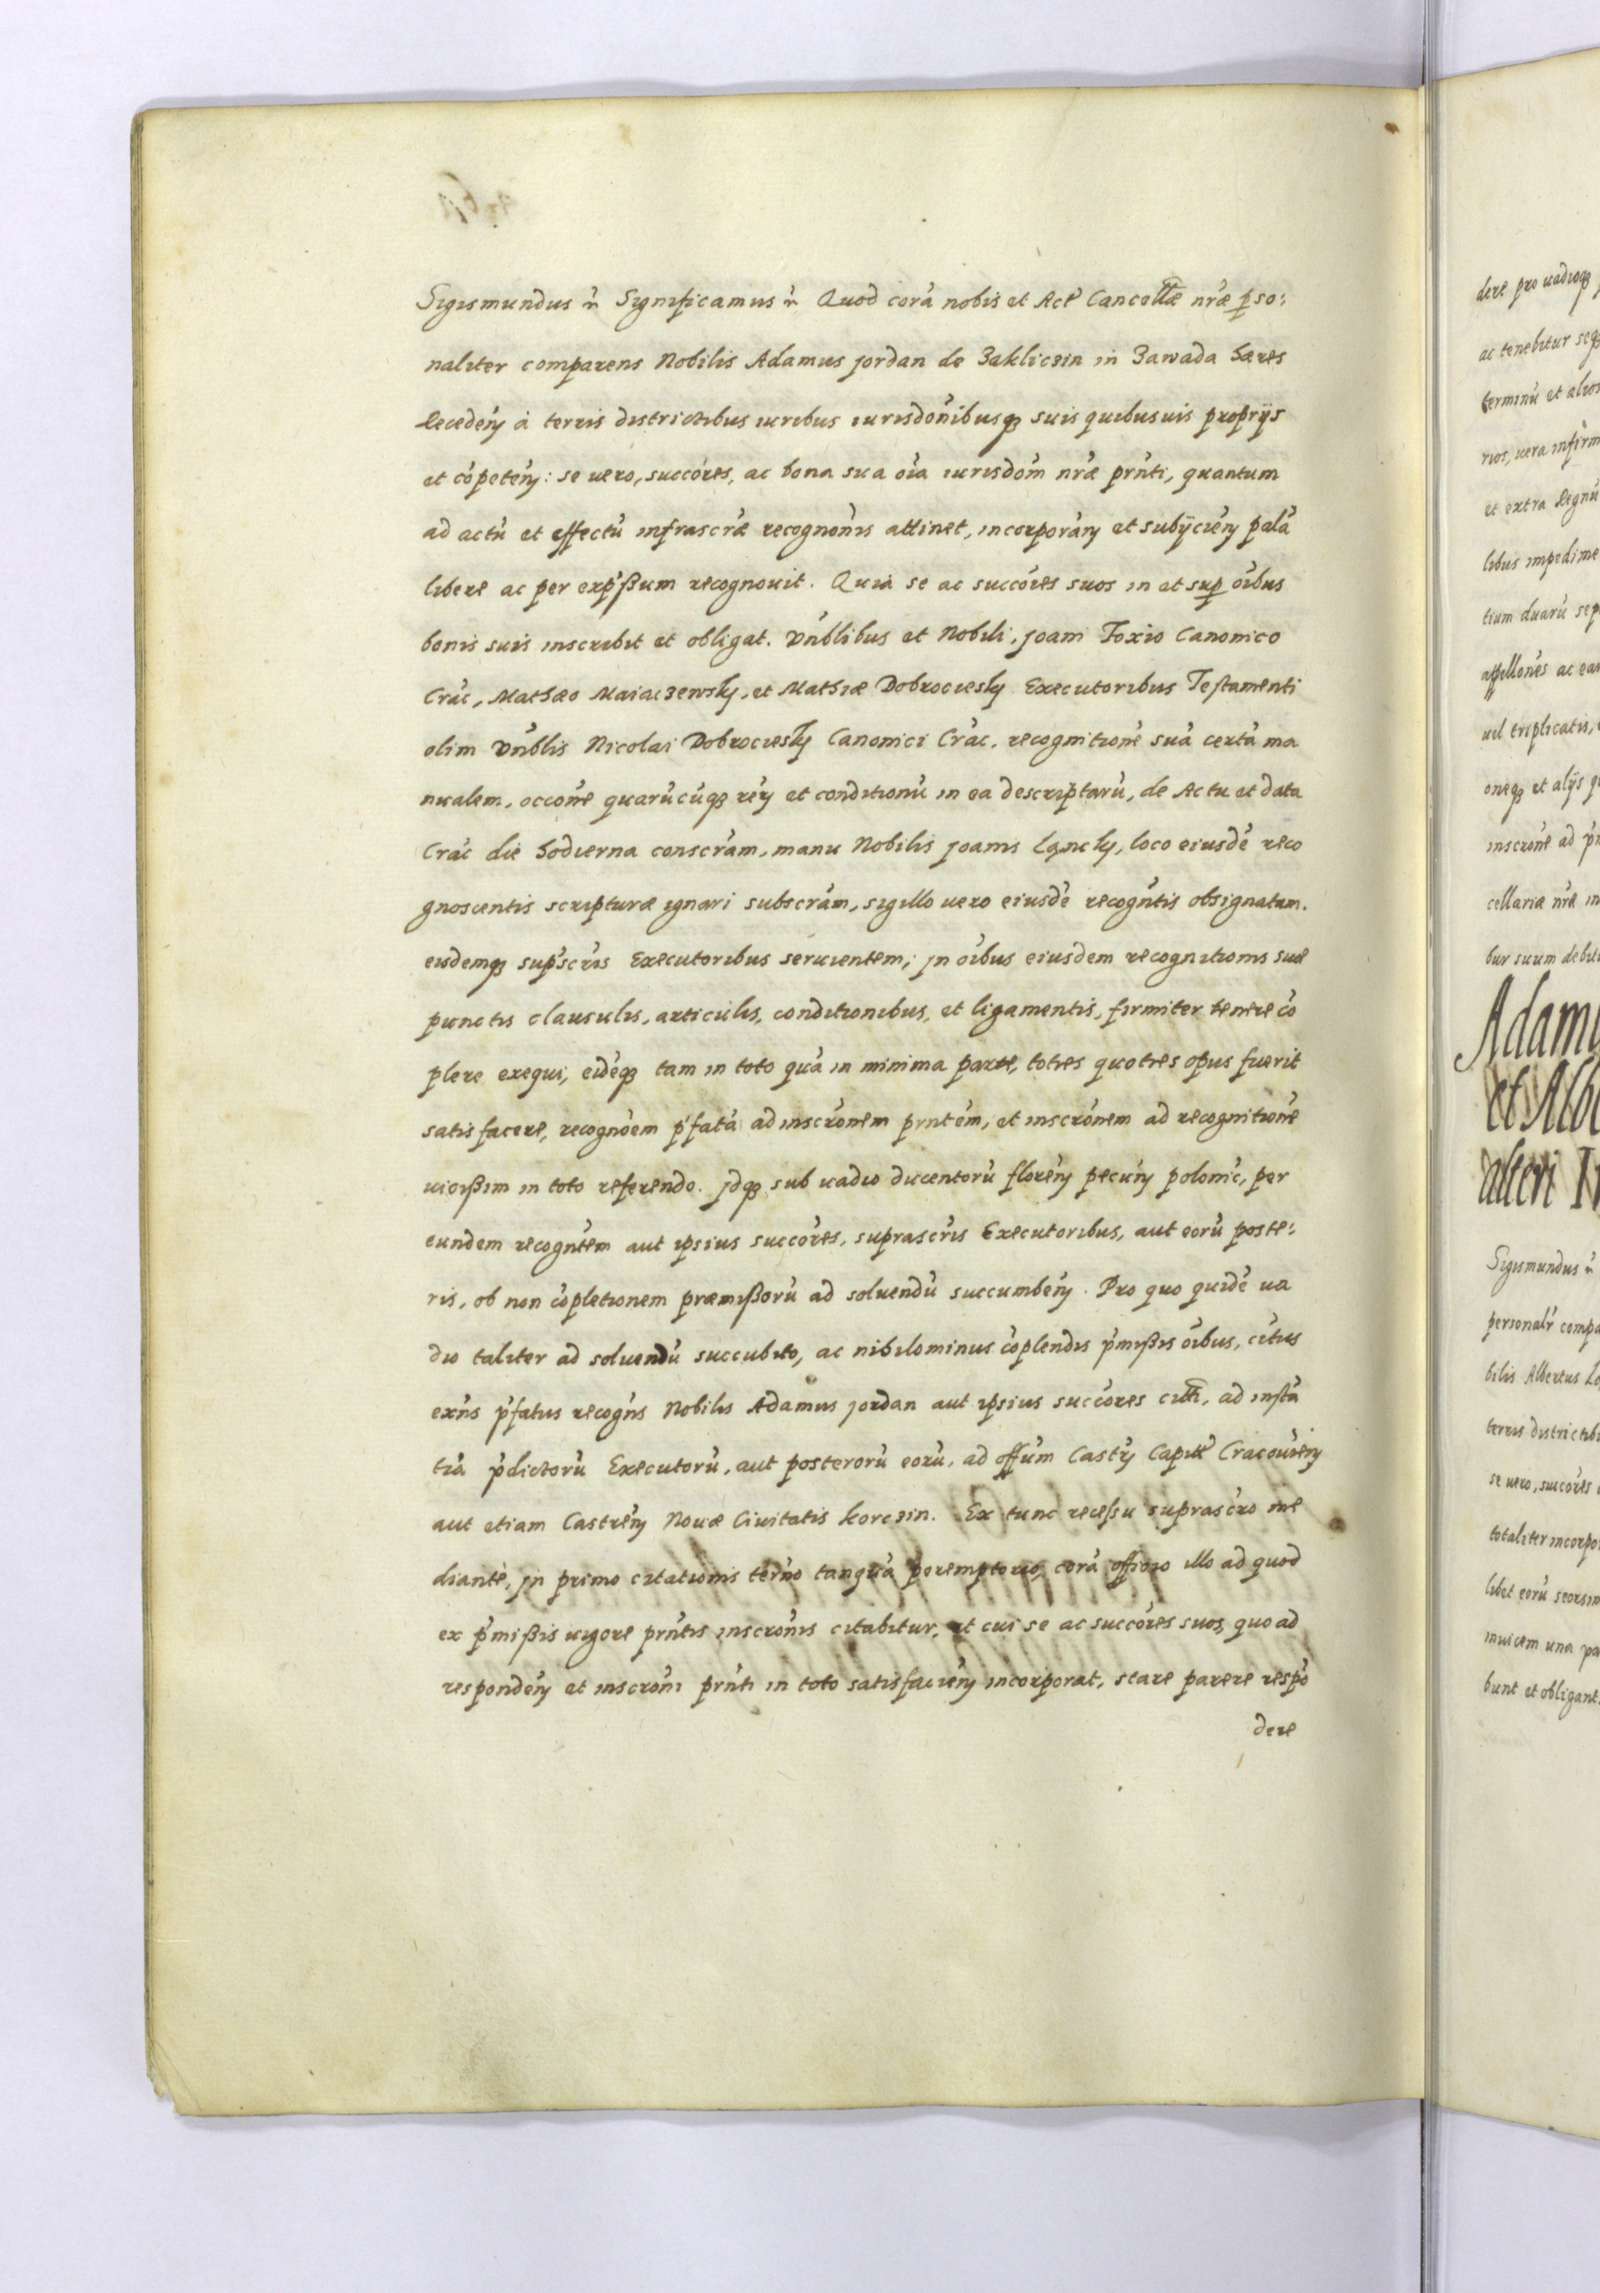 Sigismundus etc Significamus etc Quod corã nobis et Act̃ Cancellæ nr̃æ ꝑso:
naliter comparens Nobilis Adamus Jordan de Zakliczin in Zawada hæres
Recedeñ à terris districtibus iuribus iurisdoñibusqꝫ suis quibusuis proprijs
et cõpeteñ: se uero, succõres, ac bona sua oĩa iurisdoñi nr̃æ prñti, quantum
ad actũ et effectũ infrascr̃æ recognoñis attinet, incorporañ et subijcieñ palã
libere ac per exp̃ßum recognouit. Quia se ac succõres suos in et suꝑ oĩbus
bonis suis inscribit et obligat. Vñblibus et Nobili, Joañi Foxio Canonico
Crac̃, Mathæo Maiaczewsky, et Mathiæ Dobrociesky Executoribus Testamenti
olim Vñblis Nicolai Dobrociesky Canonici Crac̃. recognitionẽ suã certã ma
nualem, occoñe quarũcũqꝫ rerũ et conditionũ in ea descriptarũ, de Actu et data
Crac̃ die hodierna conscr̃am, manu Nobilis Joañis Lancky, loco eiusdẽ reco
gnoscentis scripturæ ignari subscr̃am, sigillo uero eiusdẽ recogñtis obsignatam.
eisdemqꝫ sup̃scr̃is Executoribus seruientem; Jn oĩbus eiusdem recognitionis suæ
punctis clausulis, articulis, conditionibus, et ligamentis, firmiter tenere cõ
plere exequi, eidẽqꝫ tam in toto quã in minima parte, toties quoties opus fuerit
satisfacere, recognõem p̃fatã ad inscrõnem prñtem, et inscrõnem ad recognitionẽ
uicißim in toto referendo. Jdqꝫ sub uadio ducentorũ floreñ pecuñ polonic̃, per
eundem recogñtem aut ipsius succõres, suprascr̃is Executoribus, aut eorũ poste:
ris, ob non cõpletionem præmißorũ ad soluendũ succumbeñ. Pro quo quidẽ ua
dio taliter ad soluendũ succubito, ac nihilominus cõplendis p̃mißis oĩbus, cĩtus
exñs p̃fatus recogñs Nobilis Adamus Jordan aut ipsius succõres citti, ad instã
tiã p̃dictorũ Executorũ, aut posterorũ eorũ, ad offũm Castrñ Capitt̃ Cracouieñ
aut etiam Castreñ Nouæ Ciuitatis Korczin. Ex tunc recessu suprascr̃o me
diantẽ, Jn primo citationis terño tanquã peremptorio, corã officio illo ad quod
ex p̃mißis uigore prñtis inscrõnis citabitur, et cui se ac succõres suos quo ad
respondeñ et inscrõni prñti in toto satisfacieñ incorporat, stare parere respõ
dere
dere pro uadioqꝫ
ac tenebitur seqꝫ
terminũ et alios
et extra Regnũ
libus impedime
tium duarũ
appellones ac
uel triplicatis,
oneqꝫ et alijs
inscrõne ad
cellariæ nr̃æ in
bur suum debit
Adam
et Alb
alteri
Sigismundus etc
personalr̃ compa
bilis Albertus
terris districtib
se uero, succõres
totaliter incorpo
libet eorũ seorsim
inuicem una
bunt et obligant.